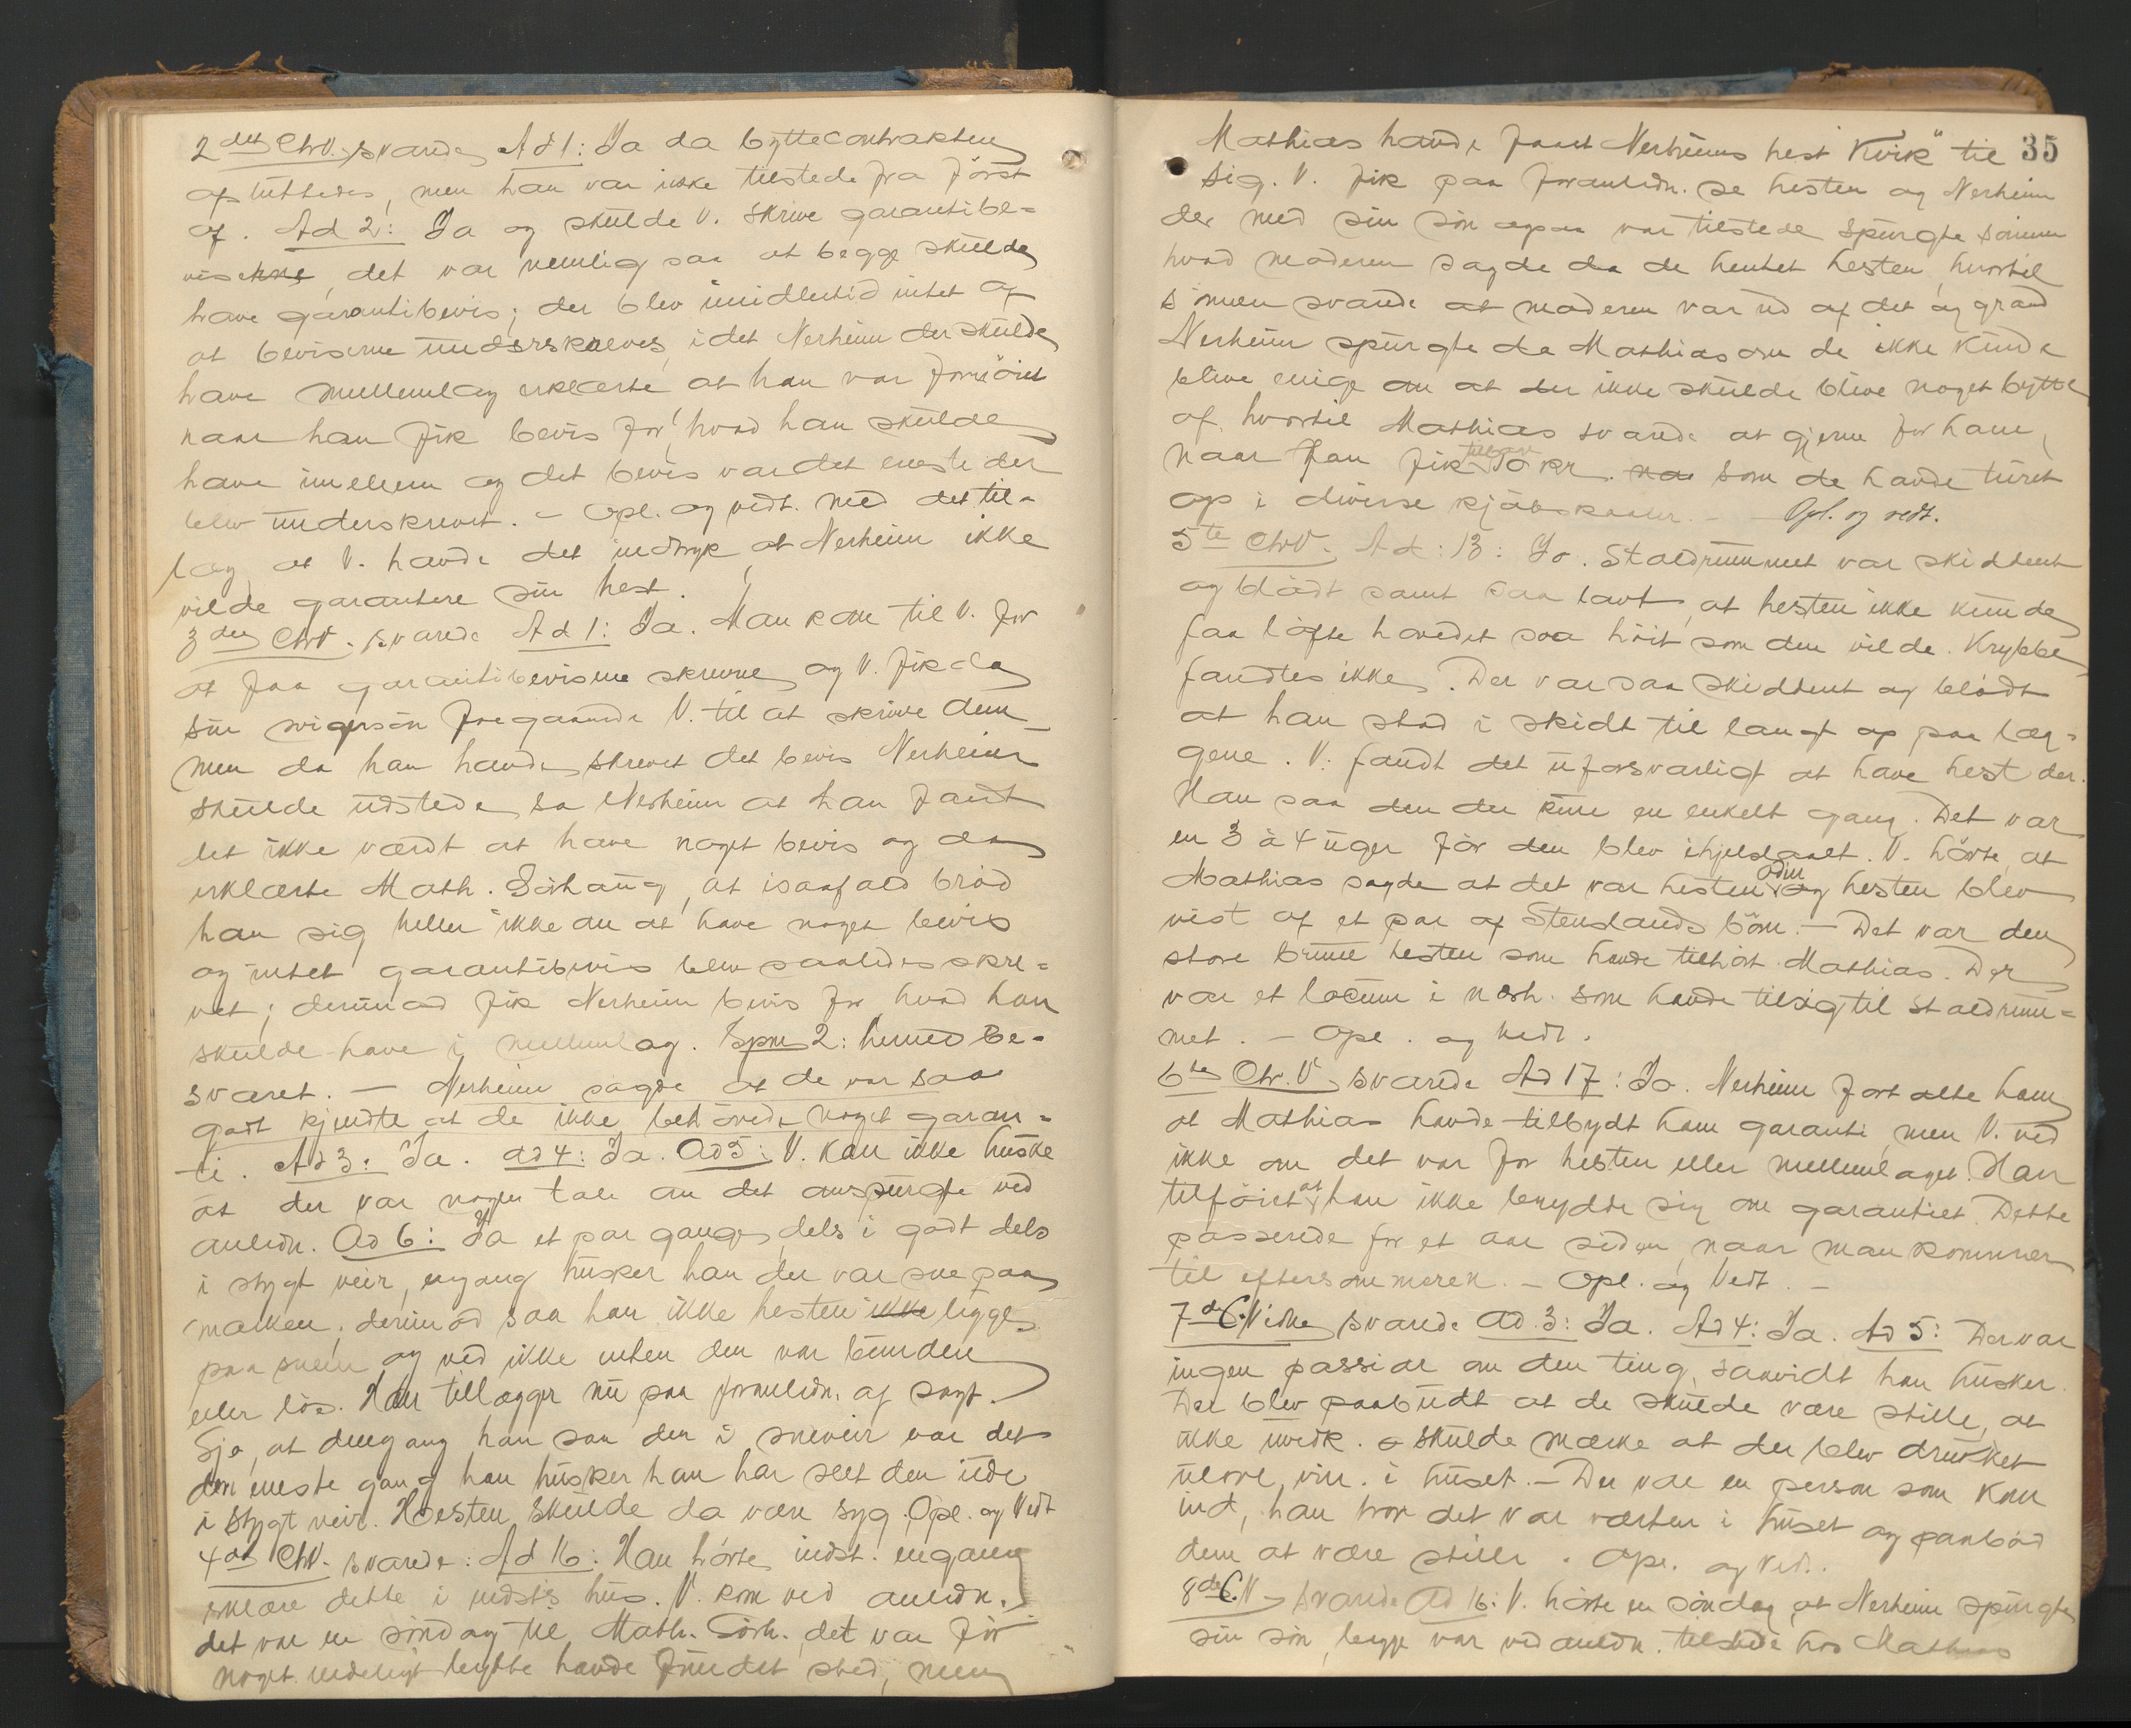 2det ChV. svarede Ad 1: Ja da byttecontrakten
afsluttedes, men han var ikke tilstede fra først
af. Ad 2: Ja og skulde V. skrive garantibe-
viserne, det var nemlig saa at begge skulde
have garantibevis; der blev imidlertid intet af
at beviserne underskreves, idet Nerheim der skulde
have mellemlag erklærte at han var fornøiet
naar han fik bevis for hvad han skulde
have imellem og det bevis var det eneste der
blev underskrevet. – Opl. og vedt. med det til-
læg at V. havde det indtryk at Nerheim ikke
vilde garantere sin hest.
3die ChV. svarede Ad 1: Ja. Man kom til V. for
at faa garantibeviserne skrevne og V. fik da
sin svigersøn foregaaende V. til at skrive dem
men da han havde skrevet det bevis Nerheim
skulde udstede sa Nerheim at han fandt
det ikke værdt at have noget bevis og da
erklærte Math. Sørhaug, at isaafald brød
han sig heller ikke om at have noget bevis
og intet garantibevis blev saaledes skre-
vet; derimod fik Nerheim bevis for hvad han
skulde have i mellemlag. Spm 2: hermed be-
svaret. – Nerheim sagde at de var saa
godt kjendte at de ikke behøvede noget garan-
ti. Ad 3: Ja. ad 4: Ja. Ad 5: V. kan ikke huske
at der var nogen tale om det omspurgte ved
anledn. Ad 6: Ja et par gange, dels i godt dels
i stygt veir, engang husker han der var sne paa
marken; derimod saa han ikke hesten ikke ligge
paa sneen og ved ikke enten den var bunden
eller løs. Han tillægger nu paa foranledn. af sagf.
Sjø, at dengang han saa den i sneveir var det
den eneste gang han husker han har seet den ude
i stygt veir. Hesten skulde da være syg. Opl. og Vedt
4de ChV. svarede: Ad 16: Han hørte indst. engang
erklære dette i indst's hus. V. kom ved anledn.
det var en søndag til Math. Sørh., det var før
noget endeligt bytte havde fundet sted, men
35
Mathias havde faaet Nerheims hest "Kvik" til
sig. V. fik paa foranledn. se hesten og Nerheim
der med sin søn ogsaa var tilstede spurgte sønnen
hvad moderen sagde da de hentet hesten, hvortil
sønnen svarede at moderen var ud af det og græd
Nerheim spurgte da Mathias om de ikke kunde
blive enige om at der ikke skulde blive noget bytte
af, hvortil Mathias svarede at gjerne for ham,
naar han fik 10 kr. som de havde turet
op i diverse kjøbskaaler. – Opl. og vedt.
5te ChV. Ad: 13: Jo. Staldrummet var skiddent
og blødt samt saa lavt, at hesten ikke kunde
faa løfte hovedet saa høit som den vilde. Krybbe
fandtes ikke. Der var saa skiddent og blødt
at han stod i skidt til langt op paa læg-
gene. V. fandt det uforsvarligt at have hest der.
Han saa den der kun en enkelt gang. Det var
en 3 à 4 uger før den blev ihjelslaaet. V. hørte, at
Mathias sagde at det var hesten odin og hesten blev
vist af et par af Stenslands børn. – Det var den
store brune hesten som havde tilhørt Mathias. Der
var et locum i nærh. som havde tilsig til staldrum-
met. – Opl. og Vedt.
6te Ch.V. svarede Ad 17: Jo. Nerheim fortalte ham
at Mathias havde tilbydt ham garanti, men V. ved
ikke om det var for hesten eller mellemlaget. Han
tilføiet at han ikke brydde sig om garantiet. Dette
passerede for et aar siden, naar man kommer
til eftersommeren. – Opl. og Vedt. –
7de C.Vidne svarede Ad. 3: Ja. Ad 4: Ja. Ad 5: Der var
ingen passiar om den ting, saavidt han husker.
Der blev paabudt at de skulde være stille, at
ikke uvedk. skulde mærke at der blev drukket
ulovl. vin. i huset. – Der var en person som kom
ind, han tror det var værten i huset og paabød
dem at være stille. Opl. og Vedt.
8de C.V. svarede Ad 16: V. hørte en søndag at Nerheim spurgte
sin søn, begge var ved anledn. tilstede hos Mathias